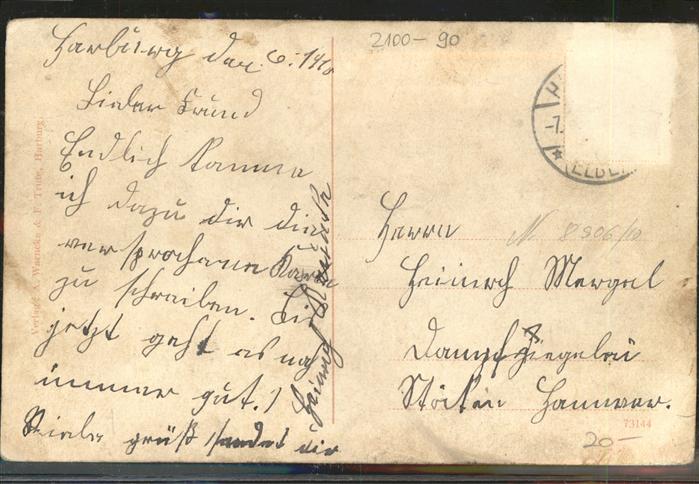 Harburg den 6. 1910
Lieber Freund
Endlich komme
ich dazu dir die
versprochene Karte
zu schreiben. Bis
jetzt geht es noch
immer gut.
Viele grüß sendet dir
Heinrich
2100-90
Herrn
N 8906/10
Heinrich Mergel
Dampfziegelei
Stöcken Hannover.
73144
20-
-7.
(ELBE)
Verlag: A. Warnecke & F. Trute, Harburg.